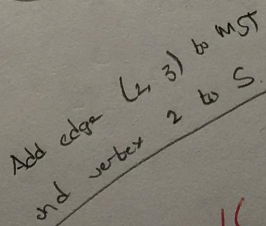 Add edge (2, 3) to MST
and vertex 2 to S.